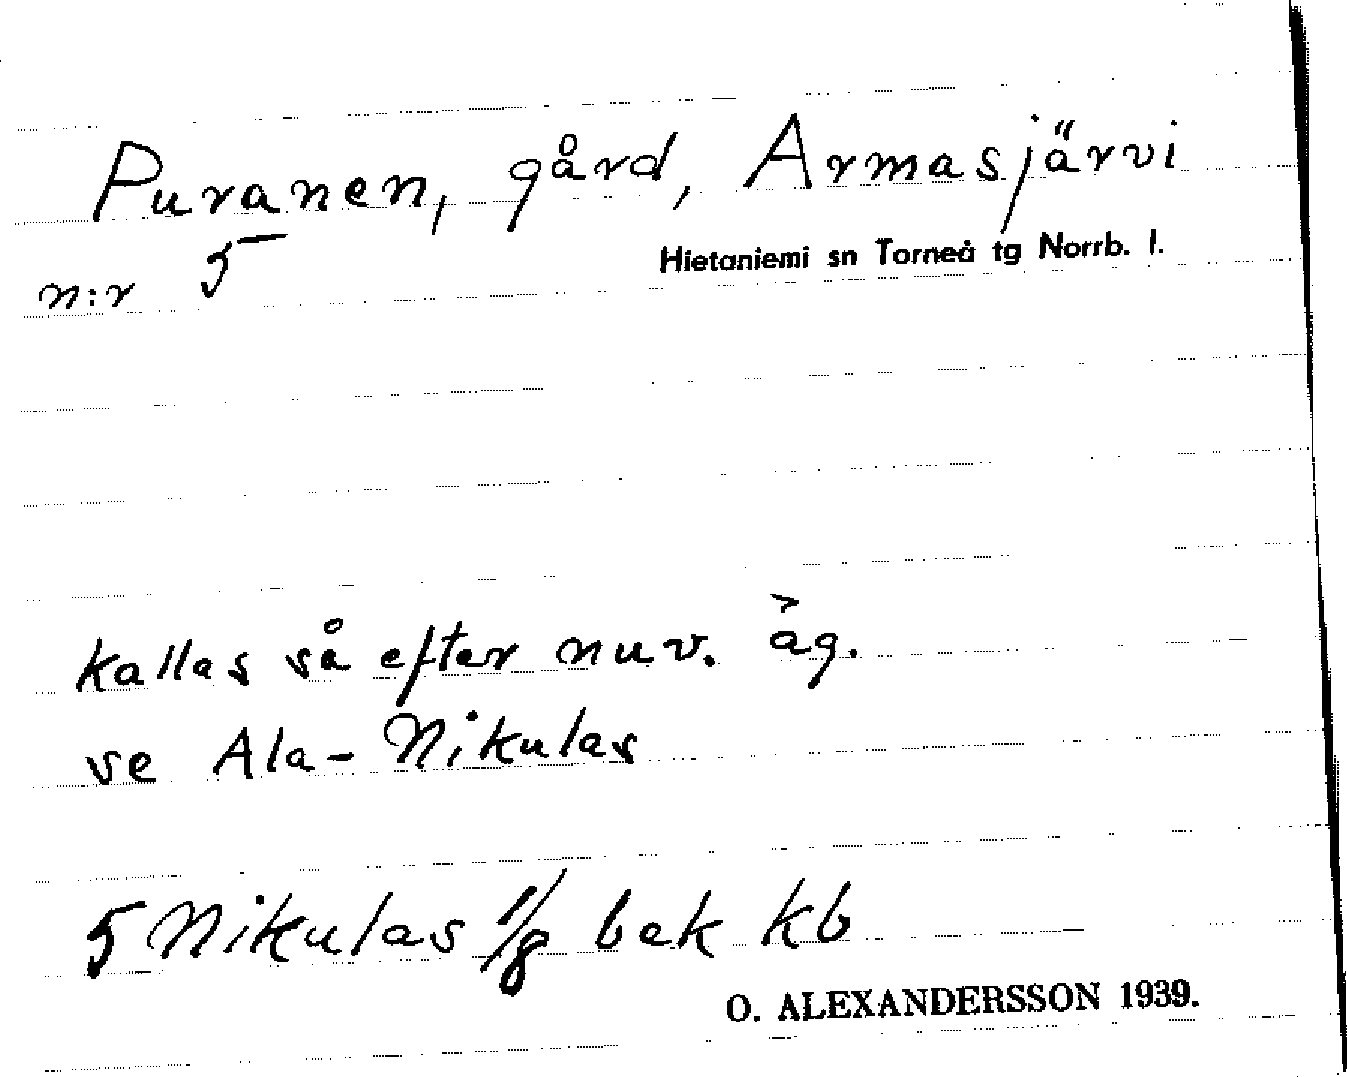 Puranen, gård, Armasjärvi
n:r 5
Hietaniemi sn Torneå tg Norrb. l.
kallas så efter nuv. äg.
se Ala-Nikulas
5 Nikulas 1/8 bek kb
O. ALEXANDERSSON 1939.